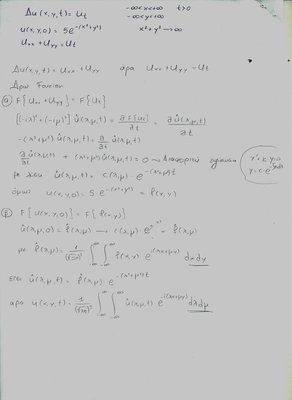 Δu(x,y,t) = u_t    -∞<x<+∞    t>0
-∞<y<+∞
u(x,y,0) = 5e^{-(x²+y²)}    x²+y² → ∞
u_xx + u_yy = u_t
Δu(x,y,t) = u_xx + u_yy    άρα    u_xx + u_yy = u_t
Άρω Fourier
α) F[u_xx + u_yy] = F[u_t]
[(-iλ)² + (-iμ)²] û(λ,μ,t) = ∂F[u]/∂t = ∂û(λ,μ,t)/∂t
-(λ²+μ²) û(λ,μ,t) = ∂/∂t û(λ,μ,t)
∂û(λ,μ,t)/∂t + (λ²+μ²) û(λ,μ,t) = 0 → Διαφορική εξίσωση
με λύση û(λ,μ,t) = c(λ,μ) · e^{-(λ²+μ²)t}
όμως u(x,y,0) = 5·e^{-(x²+y²)} = f(x,y)
β) F[u(x,y,0)] = F[f(x,y)]
û(λ,μ,0) = f̂(λ,μ) → c(λ,μ) e^0 = f̂(λ,μ)
με f̂(λ,μ) = 1/(√2π)² ∫_{-∞}^{∞} ∫_{-∞}^{∞} f(x,y) e^{i(λx+μy)} dx dy
έτσι û(λ,μ,t) = f̂(λ,μ) e^{-(λ²+μ²)t}
άρα u(x,y,t) = 1/(√2π)² ∫_{-∞}^{∞} ∫_{-∞}^{∞} û(λ,μ,t) e^{-i(λx+μy)} dλ dμ